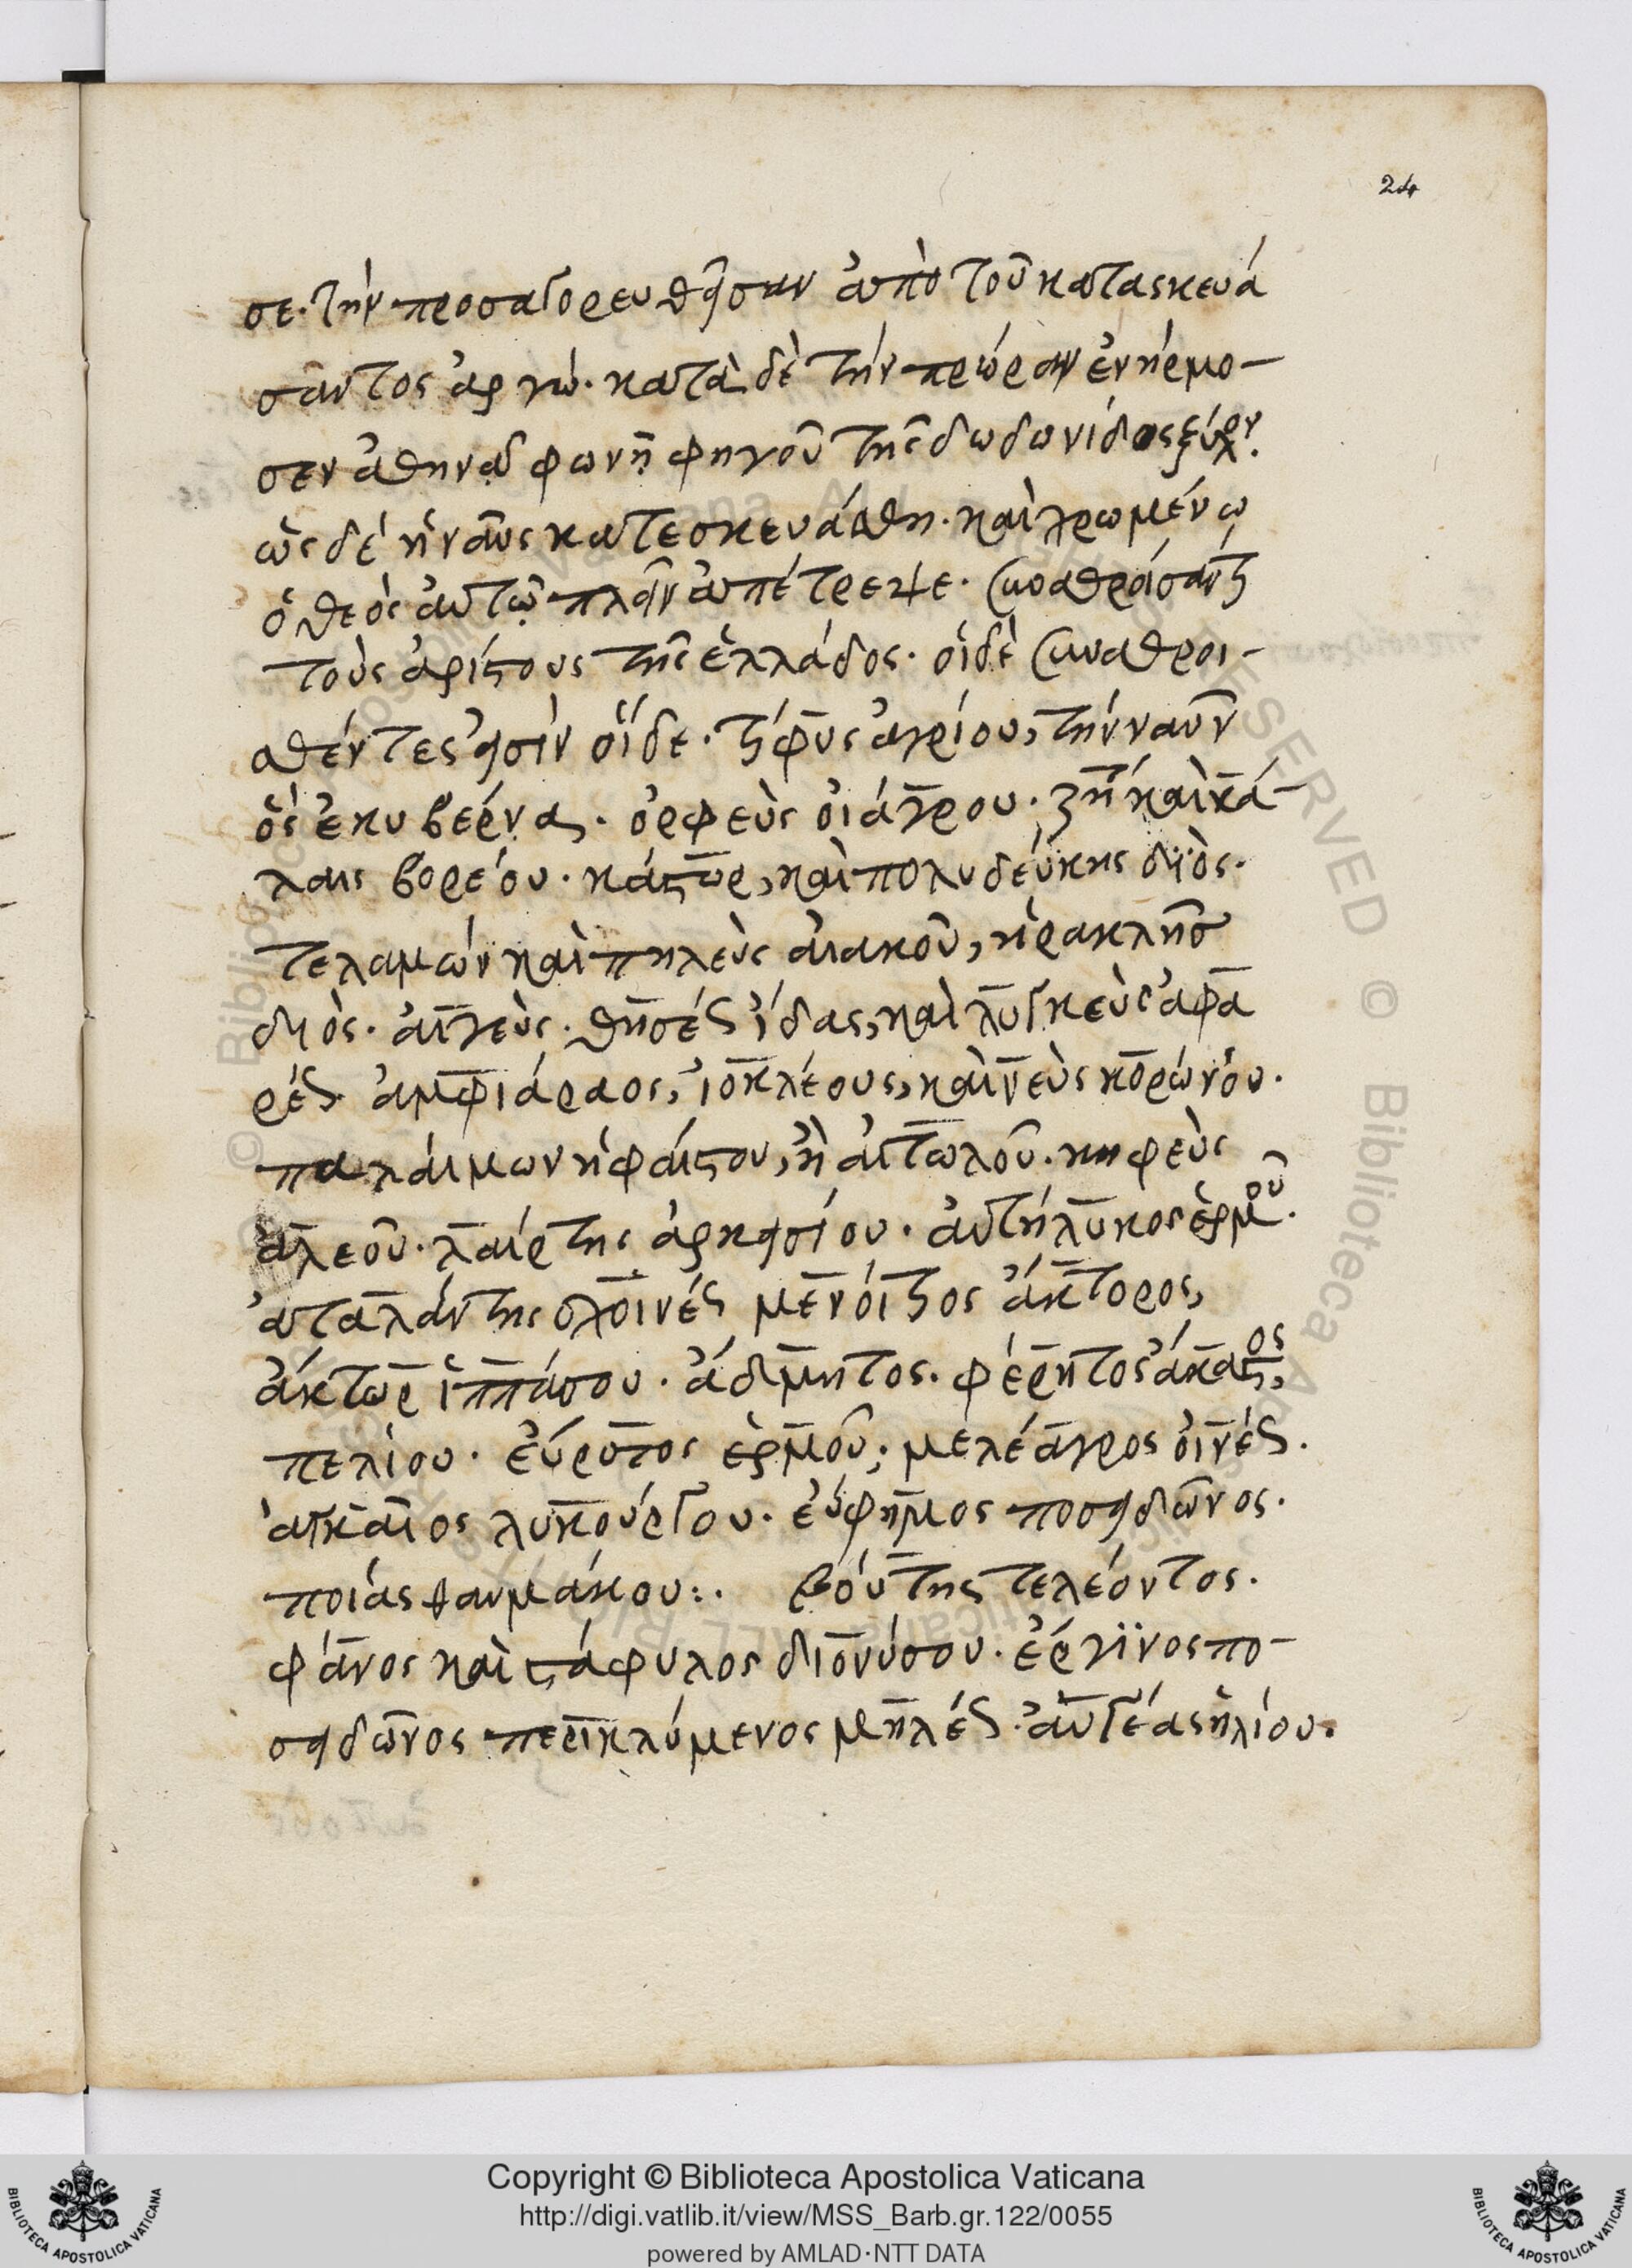 24
σε· τὴν προσαγορευθεῖσαν ἀπὸ τοῦ κατασκευά
σαντος ἀργώ· κατὰ δὲ τὴν πρώραν ἐνήρμο-
σεν ἀθηνᾶ φωνῆ φηγοῦ τῆς δωδωνίδος ξύλον.
ὡς δὲ ἡ ναῦς κατεσκευάσθη· καὶ χρωμένω
ὁ θεὸς αὐτῶ πλεῖν ἀπέτρεψε· συναθροίσαντι
τοὺς ἀρίστους τῆς ἑλλάδος· οἱ δὲ συναθροι-
σθέντες εἰσὶν οἵδε· τίφυς ἁγρίου, τὴν ναῦν
ὃς ἐκυβέρνα. ὀρφεὺς οἰάγρου· ζήτης καὶ κά-
λαις βορέου· κάστωρ, καὶ πολυδεύκης διὸς·
τελαμών καὶ πηλεὺς αἰακοῦ, ἡρακλῆς
διὸς· αἰγεὺς· θησέως ἴδας, καὶ λυγκεὺς ἀφα
ρέως ἀμφιάραος, ἰοκλέους, καινεὺς κορώνου·
παλαίμων ἡφαίστου, ἢ αἰτωλοῦ· κηφεὺς
ἀλεοῦ· λαέρτης ἀρκεισίου· αὐτόλυκος ἑρμοῦ.
ἀταλάντη σχοινέως μενοίτιος ἄκτορος,
ἄκτωρ ἱππάσου· ἄδμητος· φέρητος ἄκαστος,
πελίου· εὔρυτος ἑρμοῦ· μελέαγρος οἰνέως.
ἀγκαῖος λυκούργου· εὔφημος ποσειδῶνος·
ποίας θαυμάκου:· βούτης τελέοντος.
φάνος καὶ στάφυλος διονύσου· ἐργῖνος πο-
σειδῶνος περικλύμενος νηλέως· αὐγέας ἡλίου·
Copyright © Biblioteca Apostolica Vaticana
http://digi.vatlib.it/view/MSS_Barb.gr.122/0055
powered by AMLAD·NTT DATA